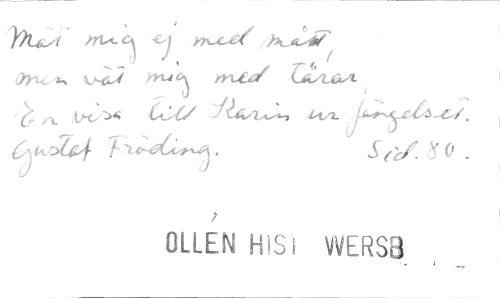 Mät mig ej med mått,
men vät mig med tårar,
En visa till Karin ur fängelset.
Gustaf Fröding. Sid. 80.
OLLÉN HIST WERSB